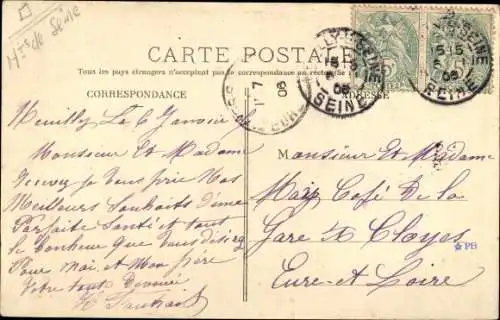 Hts de Seine
CARTE POSTALE
Tous les pays étrangers n'acceptent pas la correspondance au recto
CORRESPONDANCE
ADRESSE
SEINE
7
06
SEINE
5 5
06
SEINE
5
Neuilly Le 6 Janvier
Monsieur Et Madame
Recevez Je Vous prie Nos
Meilleurs Souhaits d'une
Parfaite Santé et tout
le bonheur que Vous désirez
Pour Moi et Mon frère
Votre tout Dévoué
Monsieur Et Madame
Café de la
Gare x Cloyes
Eure-et Loire
PB